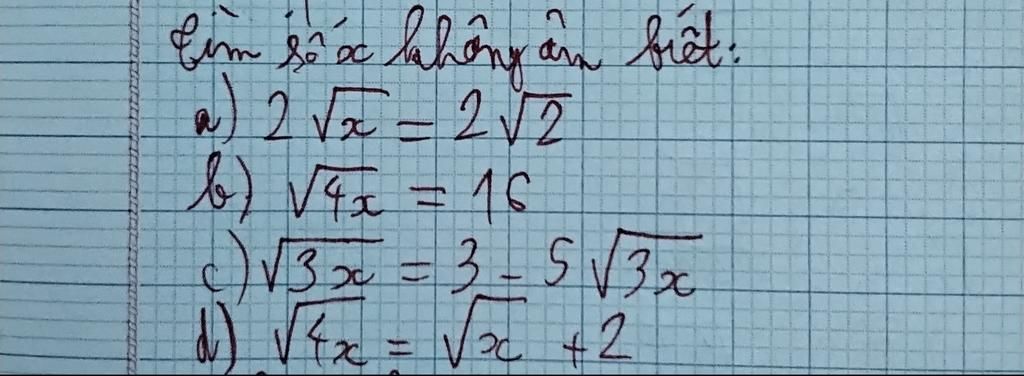 Tìm số x không âm biết:
a) 2√x = 2√2
b) √4x = 16
c) √3x = 3 - 5√3x
d) √4x = √x + 2